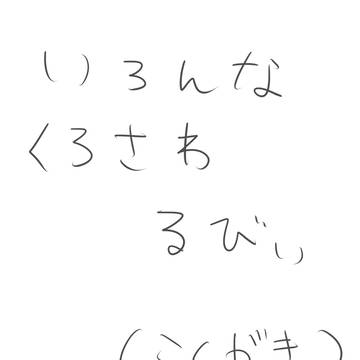 いろんな
くろさわ
るびぃ
(らくがき)